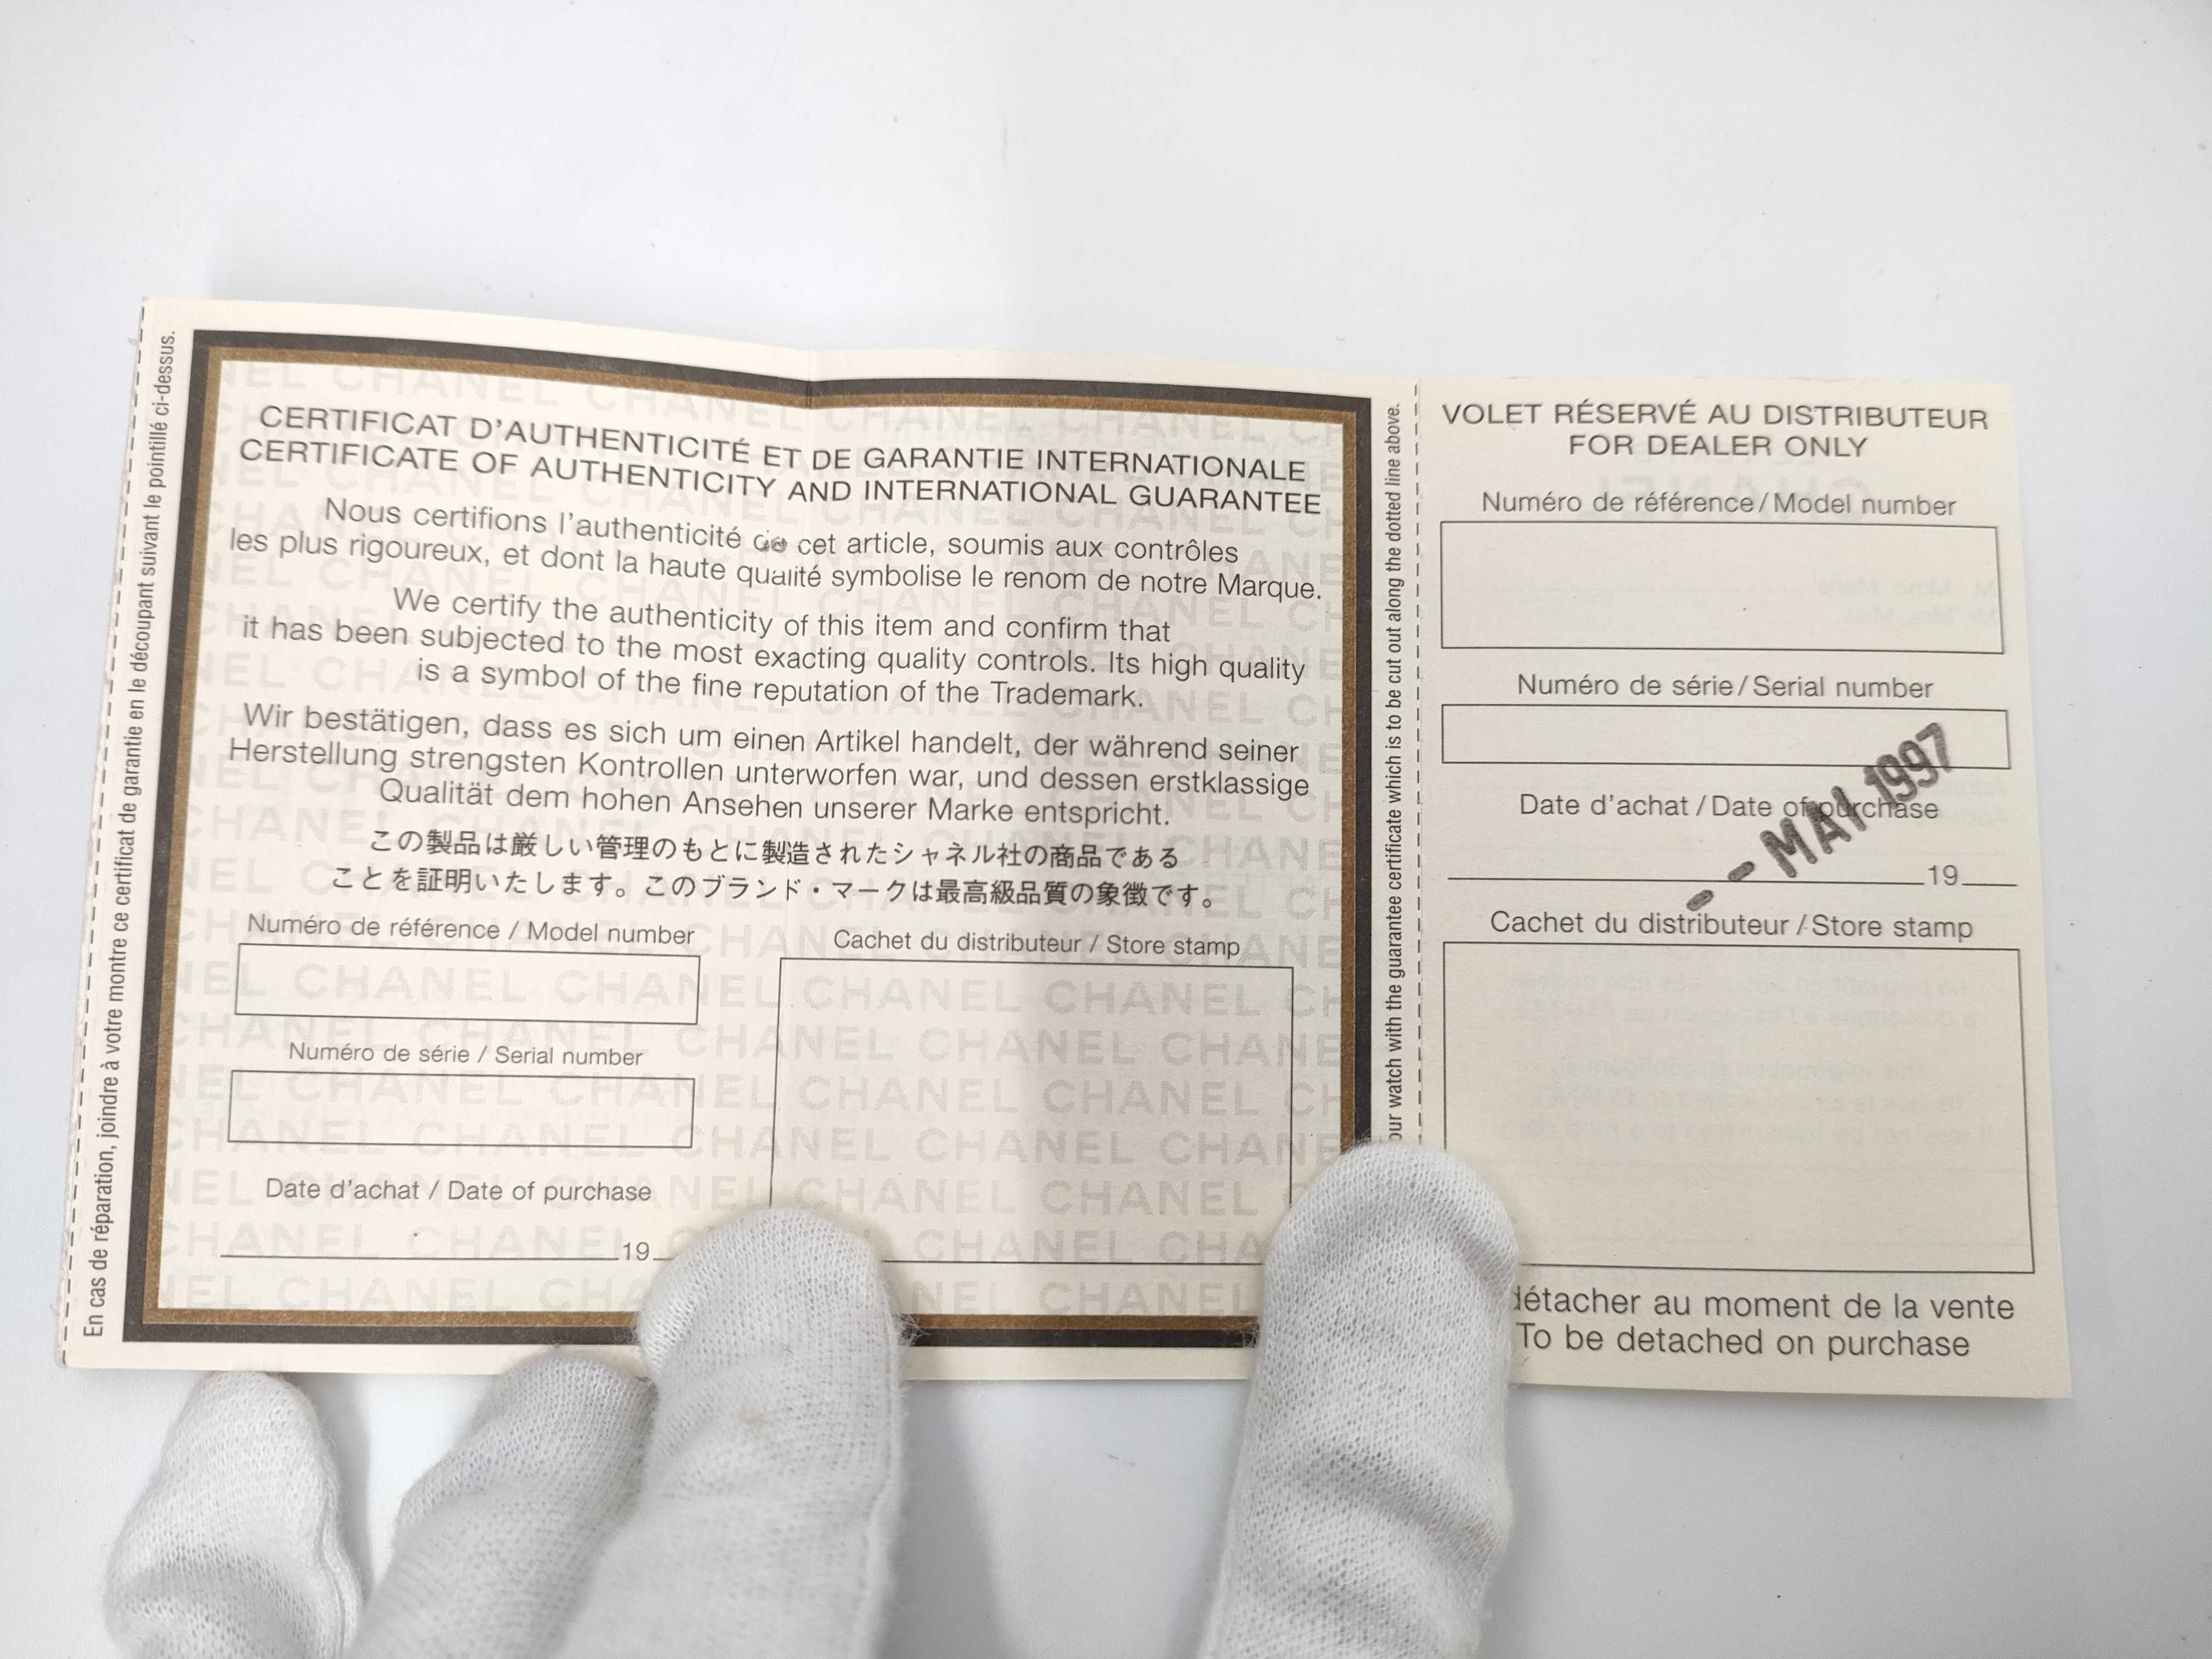 En cas de réparation, joindre à votre montre ce certificat de garantie en le découpant suivant le pointillé ci-dessus.
CERTIFICAT D'AUTHENTICITÉ ET DE GARANTIE INTERNATIONALE
CERTIFICATE OF AUTHENTICITY AND INTERNATIONAL GUARANTEE
Nous certifions l'authenticité de cet article, soumis aux contrôles
les plus rigoureux, et dont la haute qualité symbolise le renom de notre Marque.
We certify the authenticity of this item and confirm that
it has been subjected to the most exacting quality controls. Its high quality
is a symbol of the fine reputation of the Trademark.
Wir bestätigen, dass es sich um einen Artikel handelt, der während seiner
Herstellung strengsten Kontrollen unterworfen war, und dessen erstklassige
Qualität dem hohen Ansehen unserer Marke entspricht.
この製品は厳しい管理のもとに製造されたシャネル社の商品である
ことを証明いたします。このブランド・マークは最高級品質の象徴です。
Numéro de référence / Model number
Numéro de série / Serial number
Date d'achat / Date of purchase
19
Cachet du distributeur / Store stamp
CHANEL
our watch with the guarantee certificate which is to be cut out along the dotted line above.
VOLET RÉSERVÉ AU DISTRIBUTEUR
FOR DEALER ONLY
Numéro de référence / Model number
Numéro de série / Serial number
Date d'achat / Date of purchase
-- MAI 1997
19
Cachet du distributeur / Store stamp
détacher au moment de la vente
To be detached on purchase